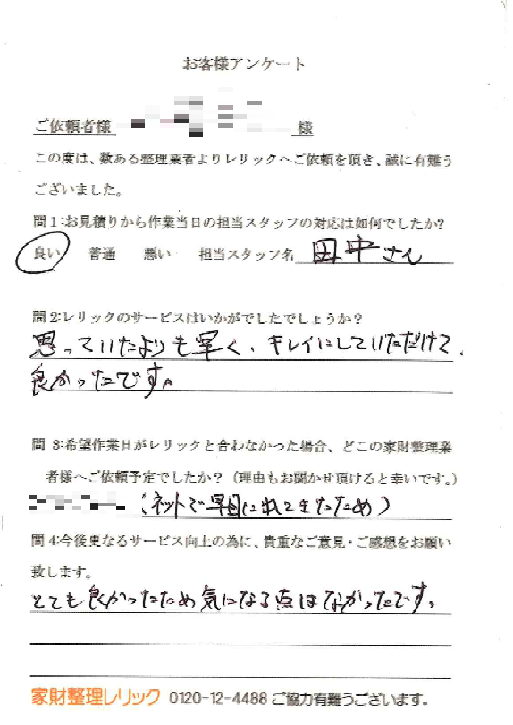 お客様アンケート
ご依頼者様 様
この度は、数ある整理業者よりレリックへご依頼を頂き、誠に有難う
ございました。
問1:お見積りから作業当日の担当スタッフの対応は如何でしたか?
良い 普通 悪い 担当スタッフ名 田中さん
問2:レリックのサービスはいかがでしたでしょうか?
思っていたよりも早く、キレイにしていただけて、
良かったです。
問3:希望作業日がレリックと合わなかった場合、どこの家財整理業
者様へご依頼予定でしたか?(理由もお聞かせ頂けると幸いです。)
(ネットで早目に てきたため)
問4:今後更なるサービス向上の為に、貴重なご意見・ご感想をお願い
致します。
とても良かったため気になる点はなかったです。
家財整理レリック 0120-12-4488 ご協力有難うございます。